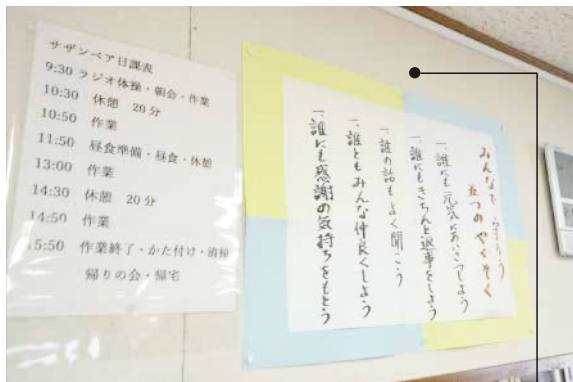 サザンベア日課表
9:30 ラジオ体操・朝会・作業
10:30 休憩 20分
10:50 作業
11:50 昼食準備・昼食・休憩
13:00 作業
14:30 休憩 20分
14:50 作業
15:50 作業終了・かた付け・清掃
帰りの会・帰宅
みんなで守ろう
五つのやくそく
一、誰にも元気にあいさつしよう
一、誰にもきちんと返事をしよう
一、誰の話もよく聞こう
一、誰ともみんな仲良くしよう
一、誰にも感謝の気持ちをもとう